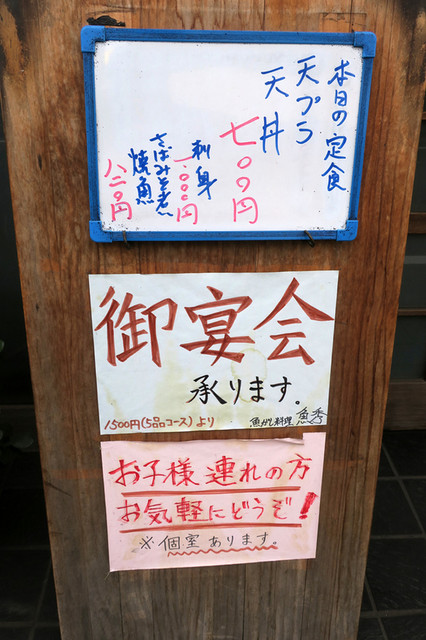 本日の定食
天プラ
天丼
七〇〇円
刺身
一.〇〇〇円
さばみそ煮
焼魚
八二〇円
御宴会
承ります。
1500円(5品コース)より
魚がし料理 魚秀
お子様連れの方
お気軽にどうぞ!
※個室あります。